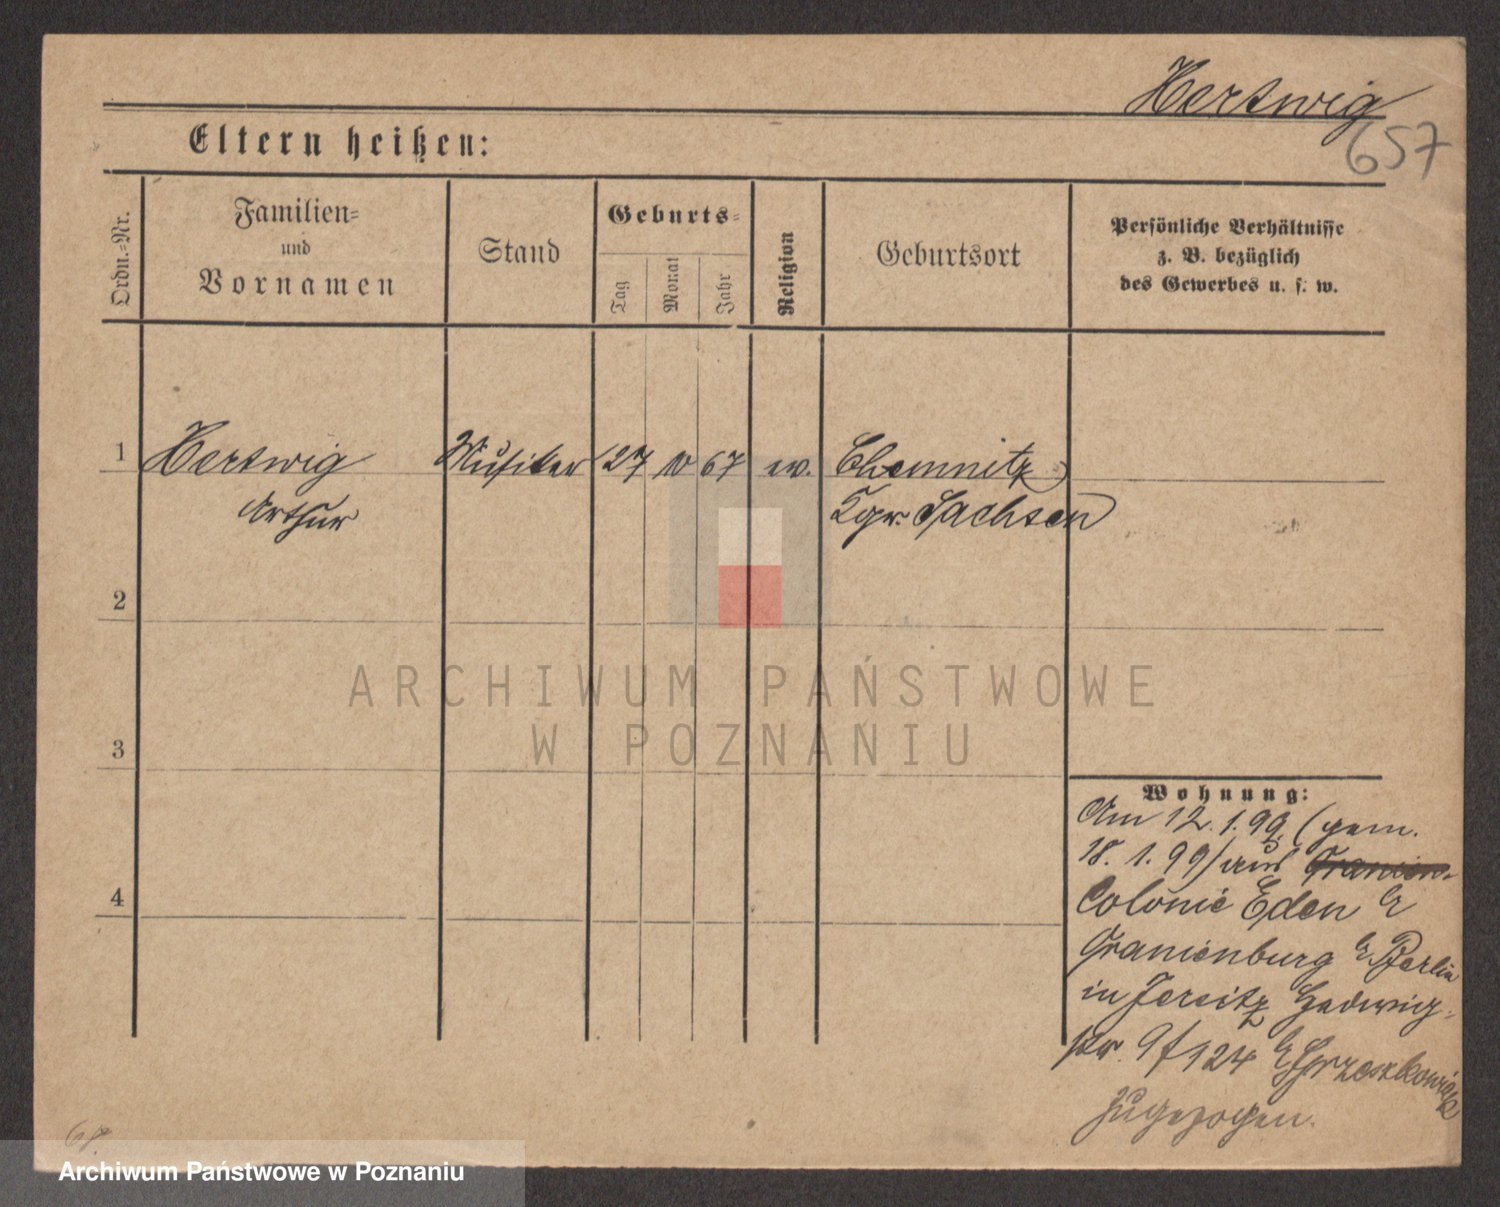 Hertwig
657
Eltern heißen:
Ordn.-Nr.
Familien-
und
Vornamen
Stand
Geburts-
Tag
Monat
Jahr
Religion
Geburtsort
Persönliche Verhältnisse
z. B. bezüglich
des Gewerbes u. s. w.
1 Hertwig Musiker 27 10 67 ev. Chemnitz
Arthur Kgr. Sachsen
2
ARCHIWUM PAŃSTWOWE
W POZNANIU
3
Wohnung:
Am 12. 1. 99 (gem.
18. 1. 99) aus Oranien-
4
Colonie Eden b
Oranienburg b Berlin
in Jersitz Hedwig-
str. 9 f 124 b
zugezogen.
68.
Archiwum Państwowe w Poznaniu